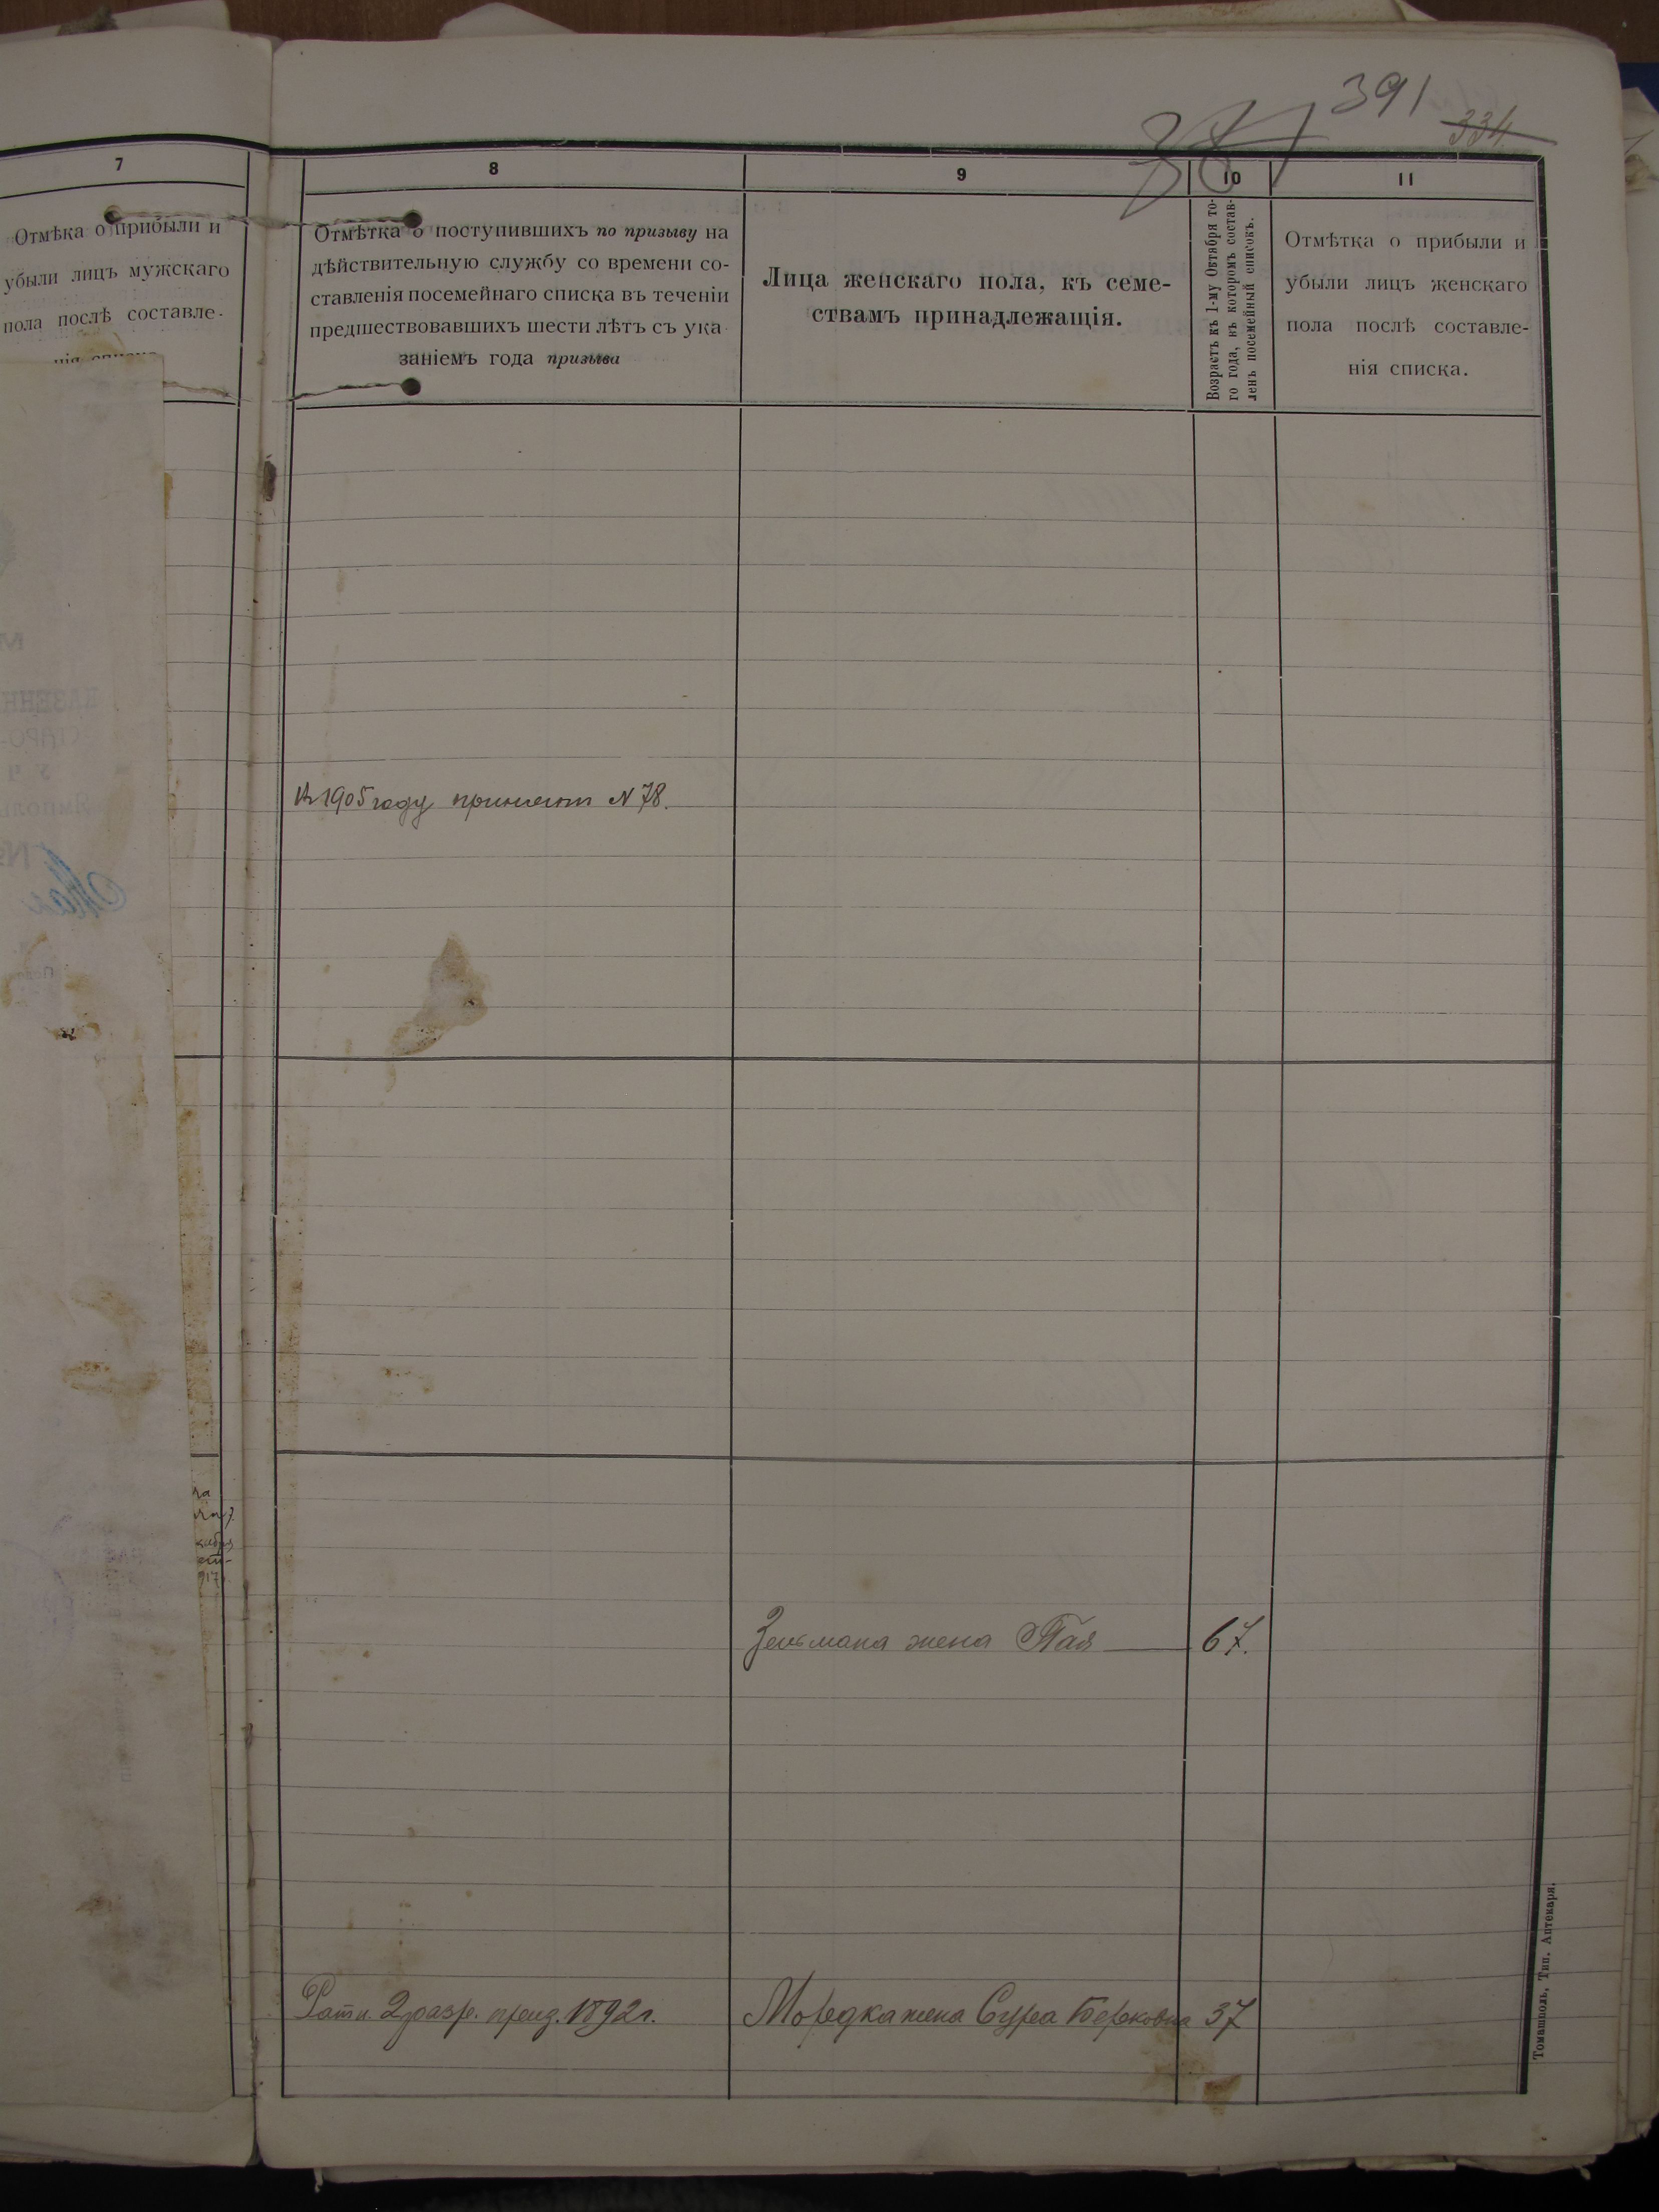 391
334
7
8
9
10
11
Отмѣка о прибыли и
убыли лицъ мужскаго
пола послѣ составле-
нія списка
Отмѣтка о поступившихъ по призыву на
дѣйствительную службу со времени со-
ставленія посемейнаго списка въ теченіи
предшествовавшихъ шести лѣтъ съ ука
заніемъ года призыва
Лица женскаго пола, къ семе-
ствамъ принадлежащія.
Возрастъ къ 1-му Октября то-
го года, въ которомъ состав-
ленъ посемейный списокъ.
Отмѣтка о прибыли и
убыли лицъ женскаго
пола послѣ составле-
нія списка.
1905 году принят N 78.
Зельмана жена 67.
Ратн. 2 разр. 1892 г.
Мордка жена Сура Берковна 37
Томашполь, Тип. Аптекаря.